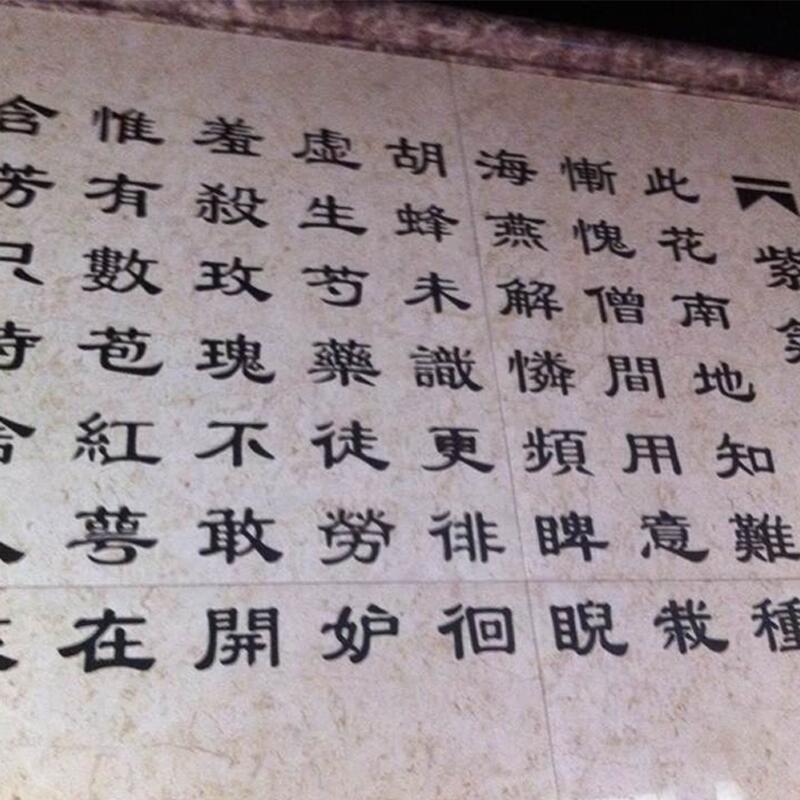 紫
此花南地知難種
慚愧僧間用意栽
海燕解憐頻睥睨
胡蜂未識更徘徊
虛生芍藥徒勞妒
羞殺玫瑰不敢開
惟有數苞紅萼在
含芳只待舍人來